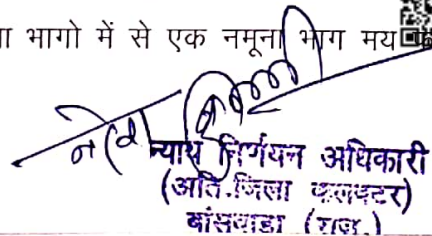 भागो में से एक नमूना भाग मय
न्याय निर्णयन अधिकारी
(अति.जिला कलक्टर)
बांसवाडा (राज.)